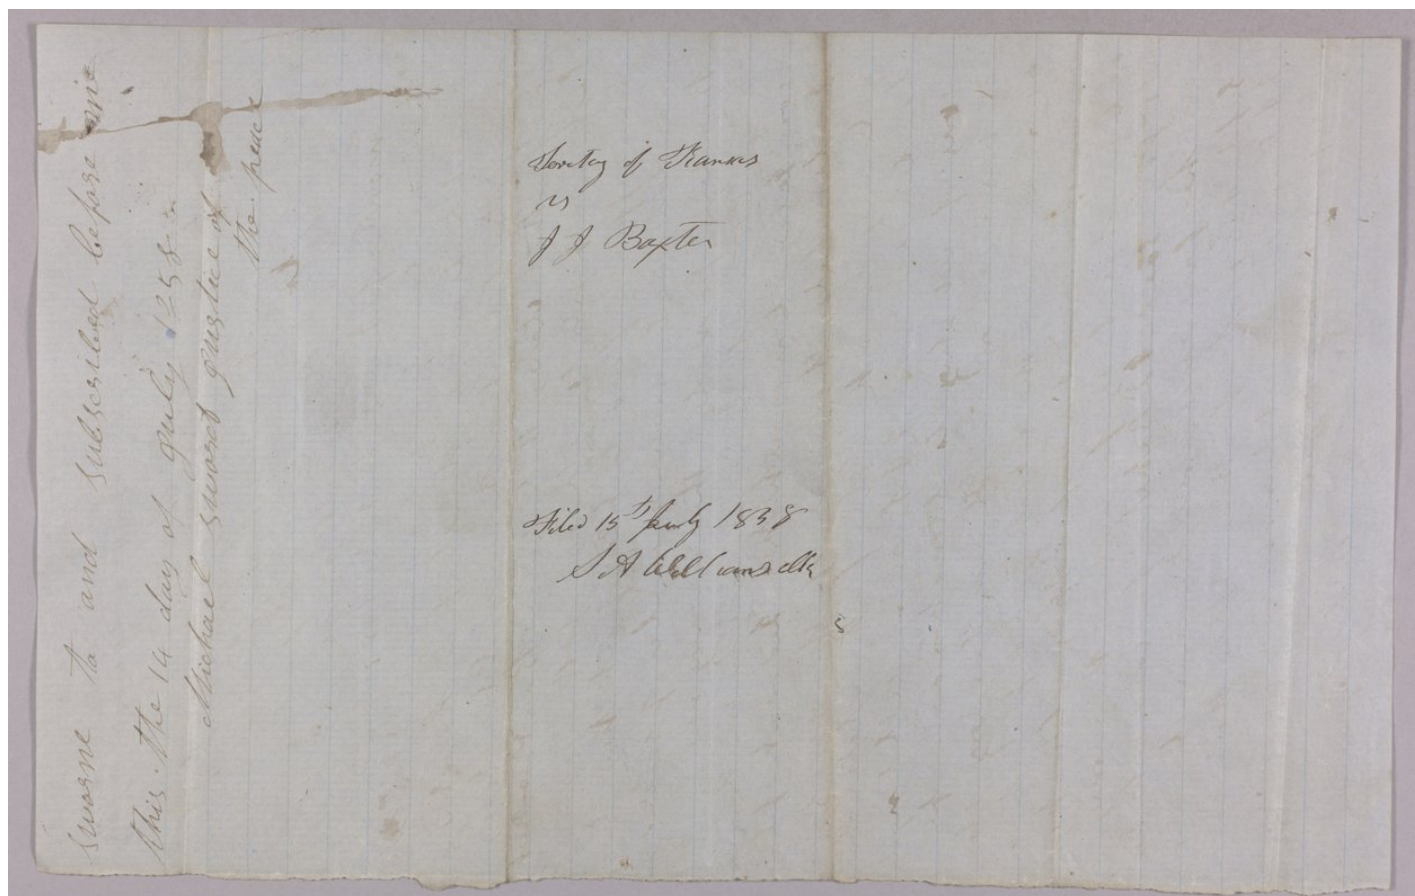 sworne to and subscribed before me
this the 14 day of july 1858
Michael sword justice of
the peace
Teretory of Kansas
vs
J J Baxter
Filed 15th July 1858
S A Williams clk